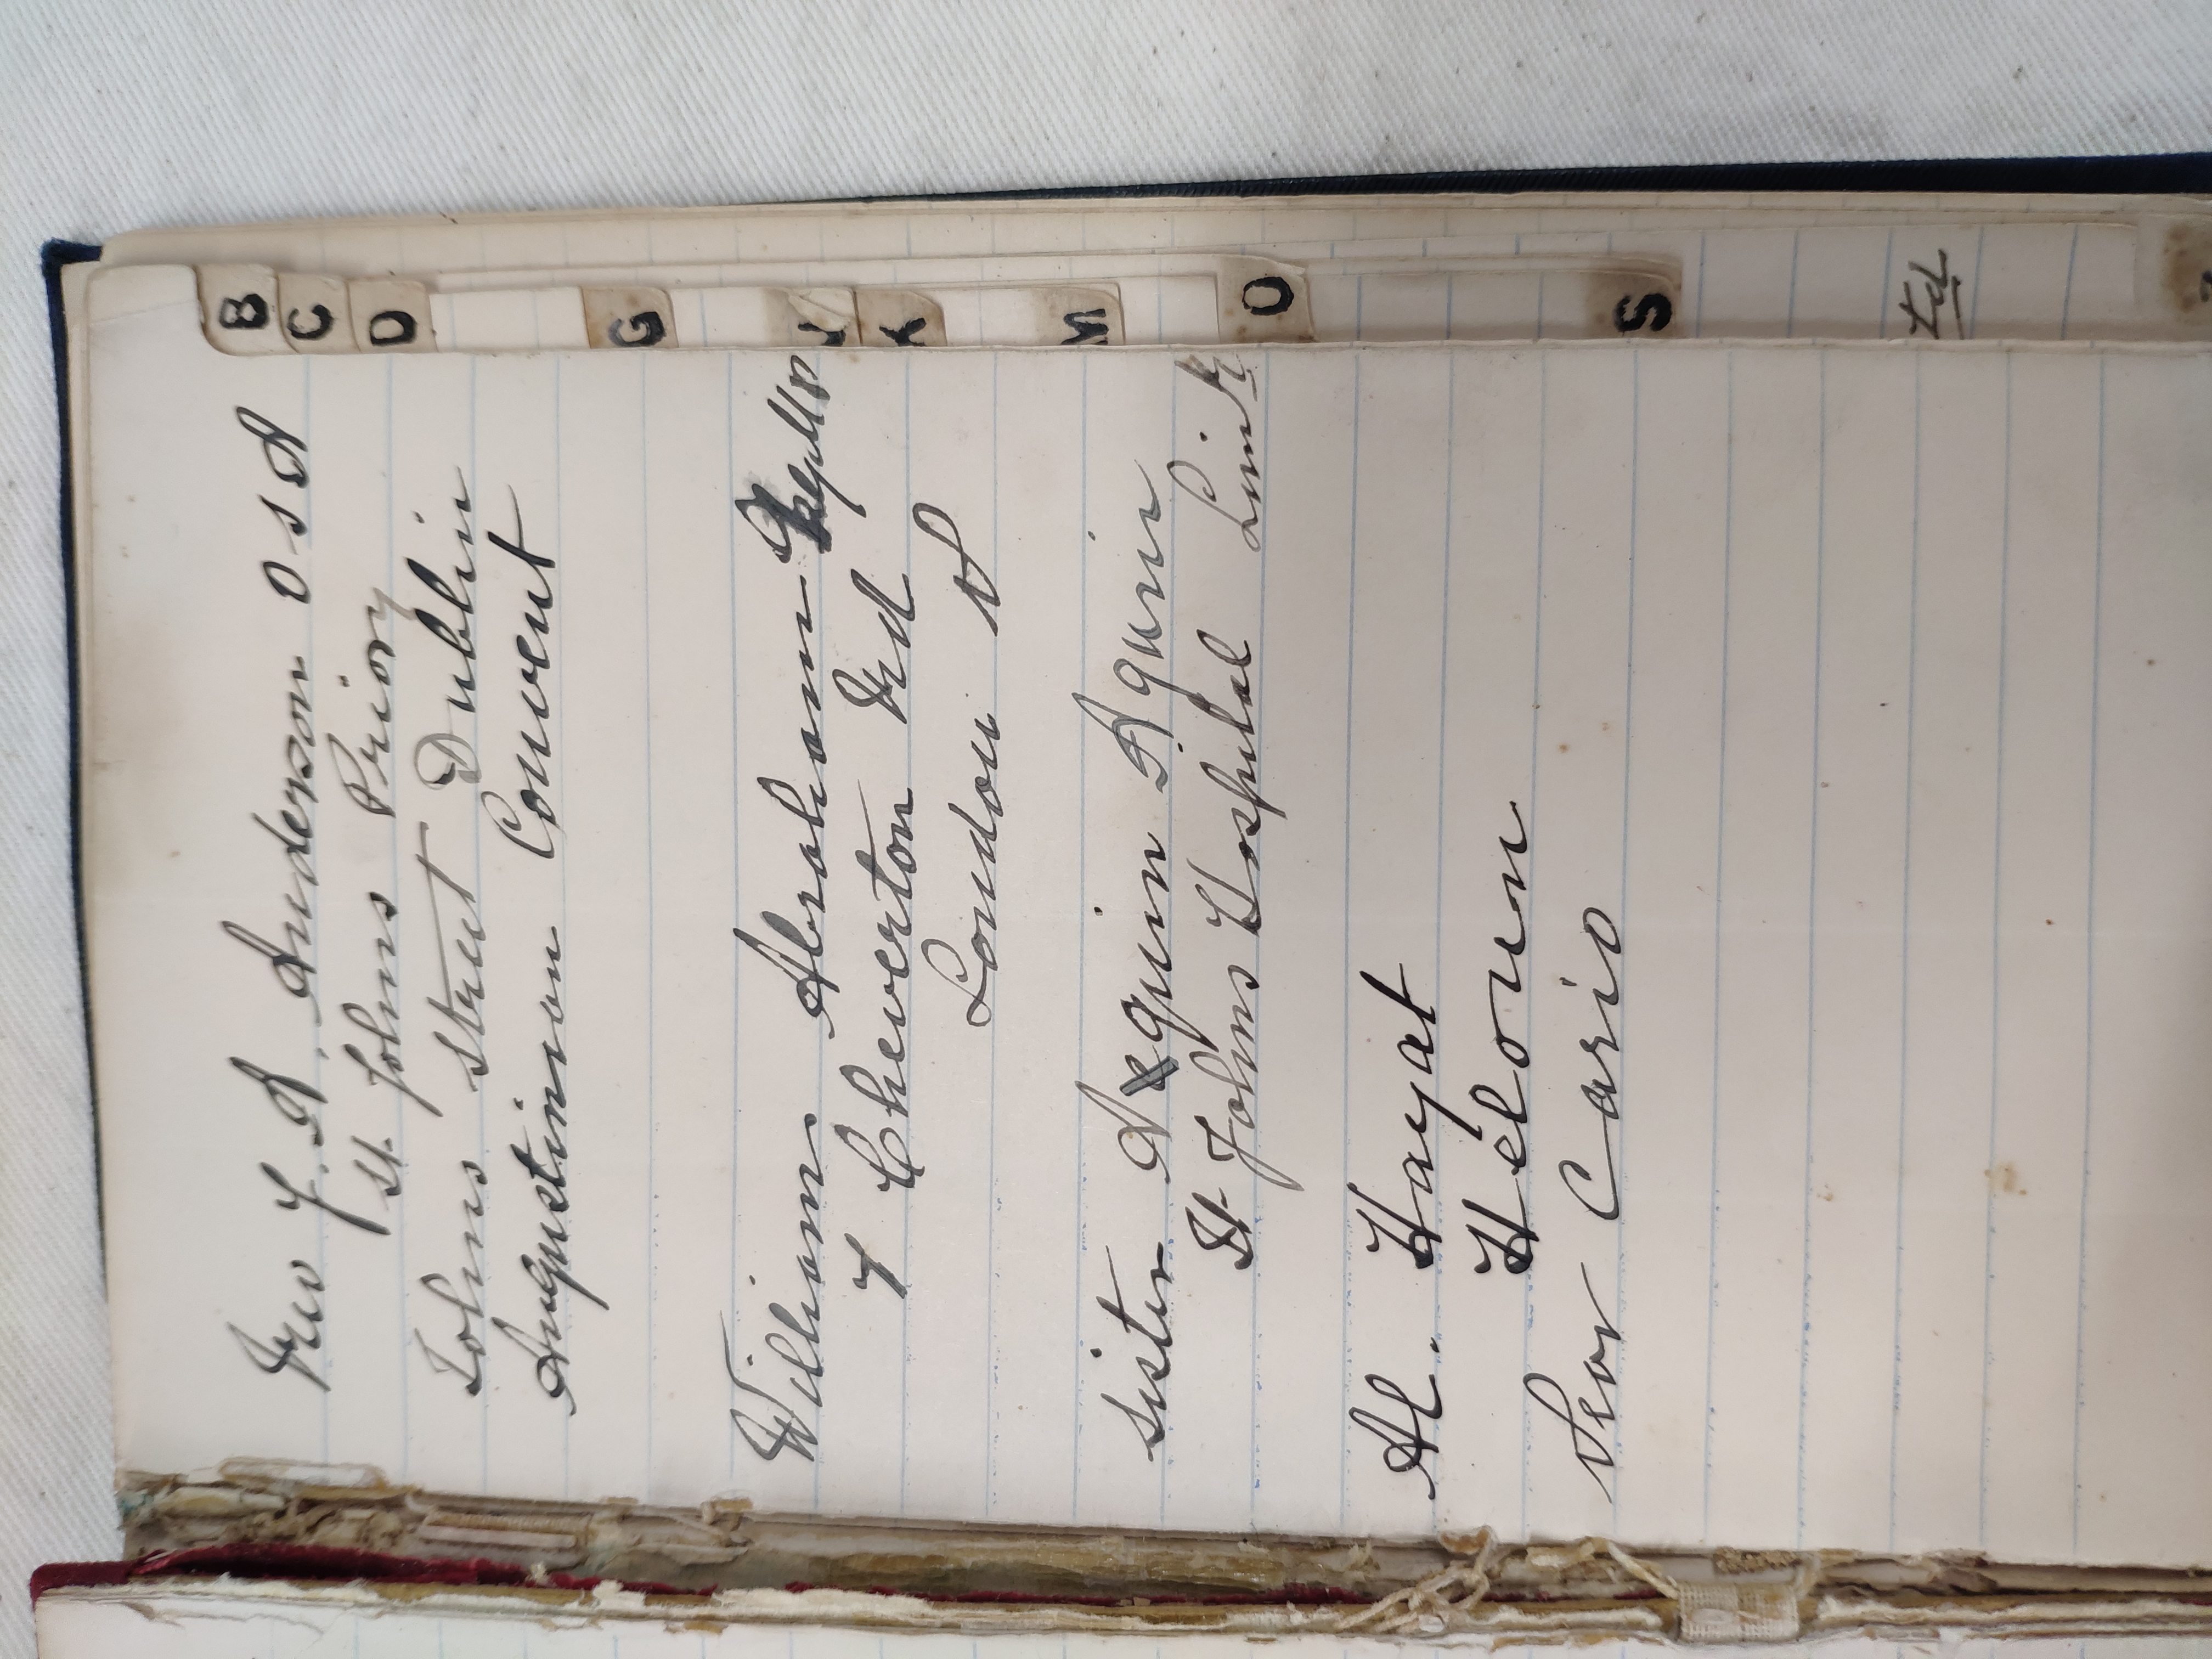 Rev J. A. Anderson O S A
St. Johns Priory
Johns street Dublin
Augustinian Convent
William Abraham
7 Cheverton Rd
London N
Sister Aquin Aquin
St Johns Hospital Limk
Al. Hayat
Heloun
Near Cario
B
C
D
G
J
K
M
O
S
td